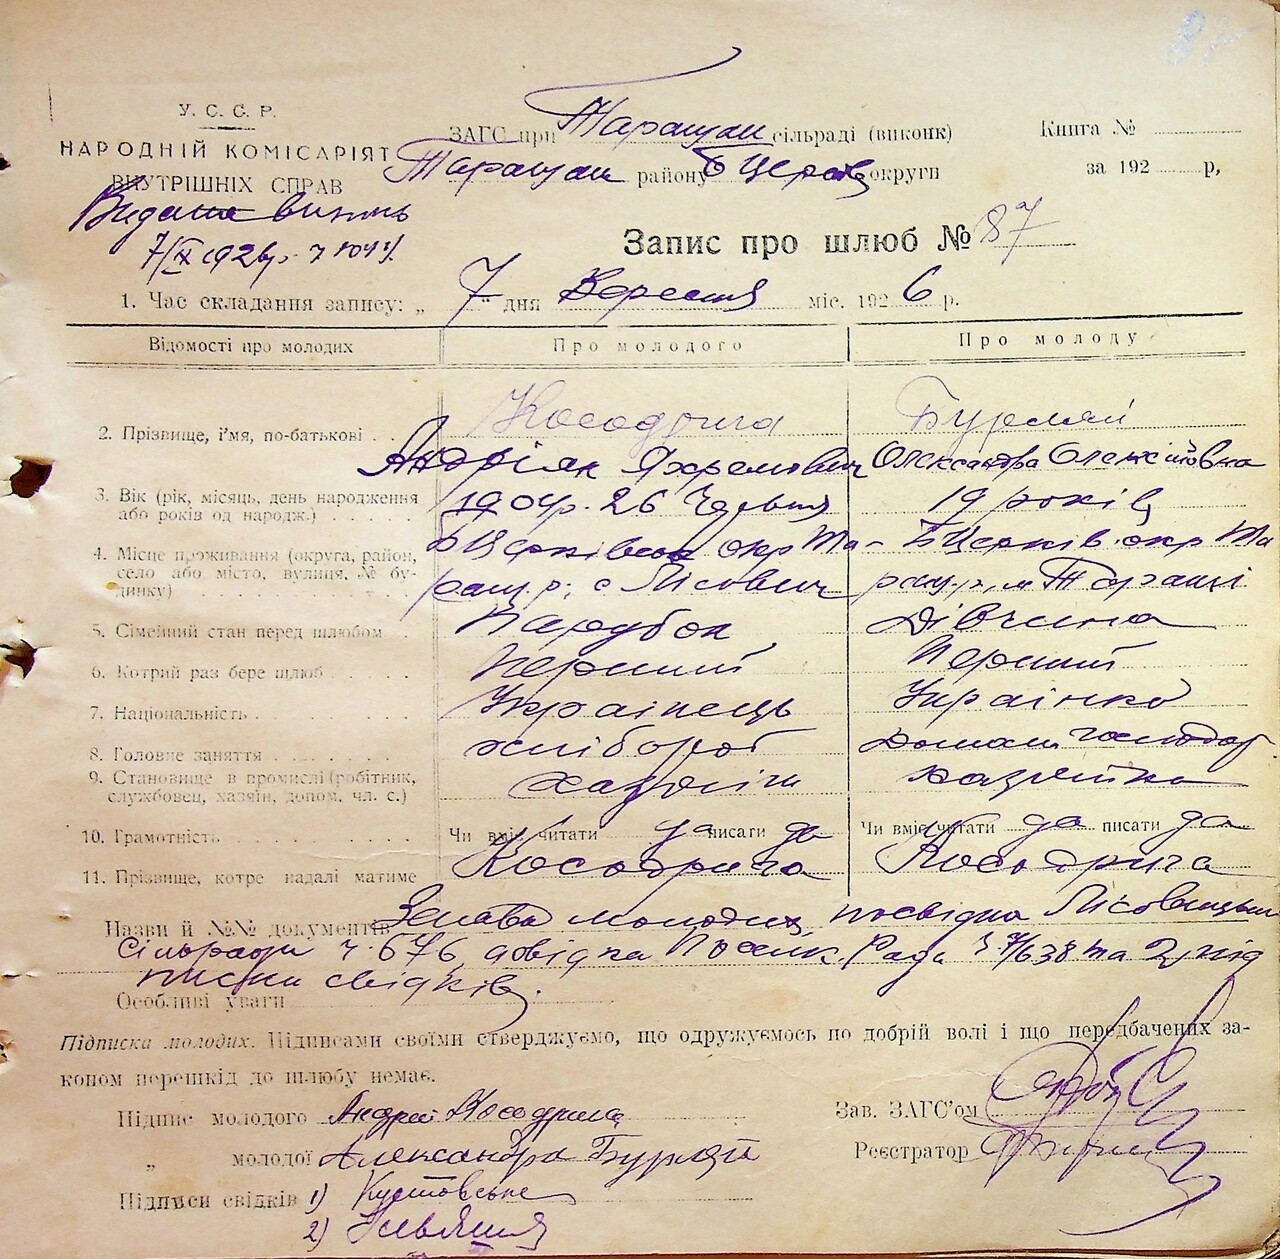 У. С. С. Р.
НАРОДНІЙ КОМІСАРІЯТ
ВНУТРІШНІХ СПРАВ
ЗАГС при Таращан сільраді (виконк)
Таращан району БЦерків округи
Книга №
за 192 р,
Видана випись
7/IX 1926 р.
Запис про шлюб № 87
1. Час складання запису: „ 7 " дня Вересня міс. 1926 р.
Відомості про молодих
Про молодого
Про молоду
2. Прізвище, і'мя, по-батькові
Косодрига
Андріян Яхремович
Бурлай
Олександра Олексіївна
3. Вік (рік, місяць, день народження або років од народж.)
190 р. 26
19 років
4. Місце проживання (округа, район, село або місто, вулиця, № будинку)
БЦерківськ окр Та-
ращ. р; с Лісович
БЦерків. окр Та
ращ. р, м Таращі
5. Сімейний стан перед шлюбом
Парубок
Дівчина
6. Котрий раз бере шлюб
Перший
Перший
7. Національність
Українець
Українка
8. Головне заняття
хлібороб
Домаш господар
9. Становище в промислі (робітник, службовец, хазяїн, допом. чл. с.)
хазяїн
хазяйка
10. Грамотність
Чи вміє читати да писати да
Чи вміє читати да писати да
11. Прізвище, котре надалі матиме
Косодрига
Косодрига
Назви й №№ документів Заява молодих, посвідка Лісовицьки
сільради ч. 676, довідка Рада ч 7/638 та 2 під
писки свідків.
Особливі уваги
Підписка молодих. Підписами своїми стверджуємо, що одружуємось по добрій волі і що передбачених за-
коном перешкід до шлюбу немає.
Підпис молодого Андрей Косодрига
„ молодої Александра Бурлай
Підписи свідків 1)
2)
Зав. ЗАГС'ом
Реєстратор